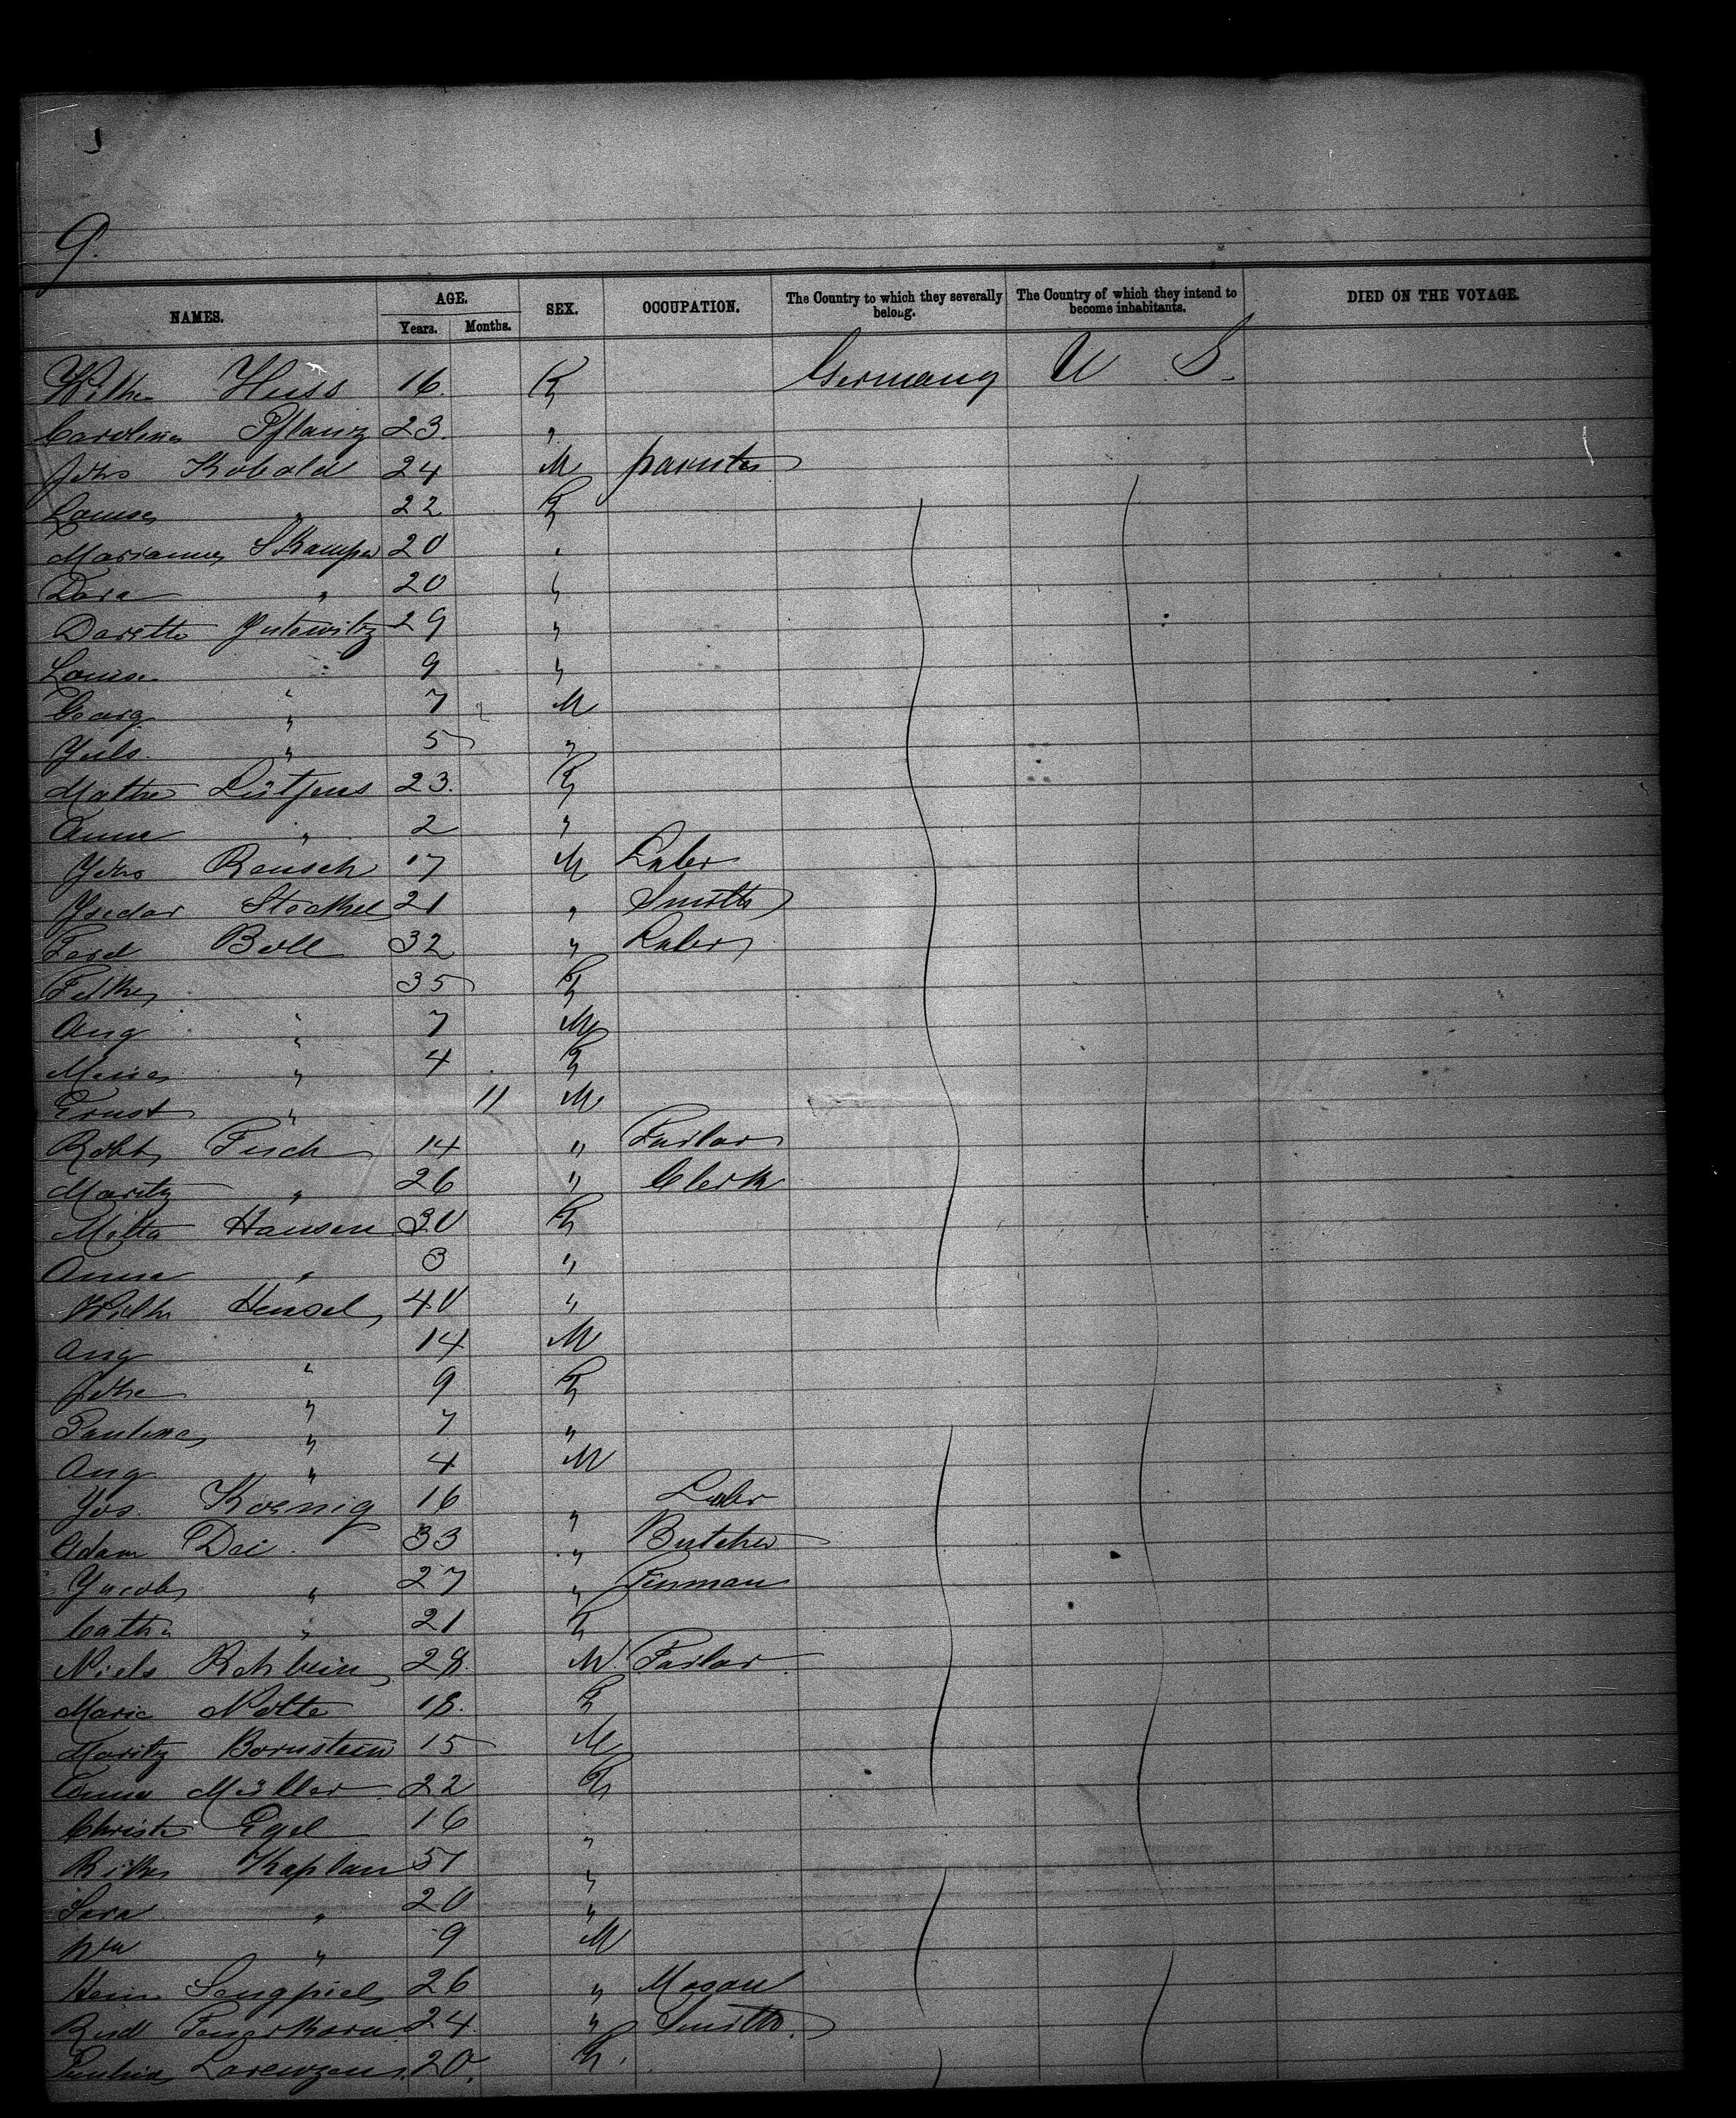 9.
NAMES. AGE. SEX. OCCUPATION. The Country to which they severally belong. The Country of which they intend to become inhabitants. DIED ON THE VOYAGE.
Years. Months.
Wilhe Huss 16. F Germany U S.
Caroline Pflanz 23. "
Johs Kobold 24 M
Louise " 22 F
Marianne Skamper 20 "
Dora " 20 "
Dorette 29 "
Louise " 9 "
Georg " 7 M
Juls. " 5 "
Mathe Lütjens 23. F
Anna " 2 "
Johs Rausch 17 M Labr
Isidor Stockel 21 " Smith
Ferd Boll 32 " Labr
35 F
Aug " 7 M
" 4 F
Ernst " 11 M
Robt Fisch 14 " Tailor
Moritz " 26 " Clerk
Metta Hansen 30 F
Anna " 3 "
Wilhe Hensel 40 "
Aug " 14 M
Johe " 9 F
Pauline " 7 "
Aug " 4 M
Jos. Koenig 16 " Labr
Adam Dei 33 " Butcher
Jacob " 27 "
Cathe " 21 F
Niels Rehbein 28. M Tailor
Marie Nolte 18. F
Moritz Bornstein 15 M
Anna Müller 22 F
Christe Egel 16 "
Rike Kaplan 51 "
Sara " 20 "
" 9 M
Hein Sengpiel 26 " Mason
Rud Feuerkorn 24. " Smith.
Pauline Lorenzen. 20. F